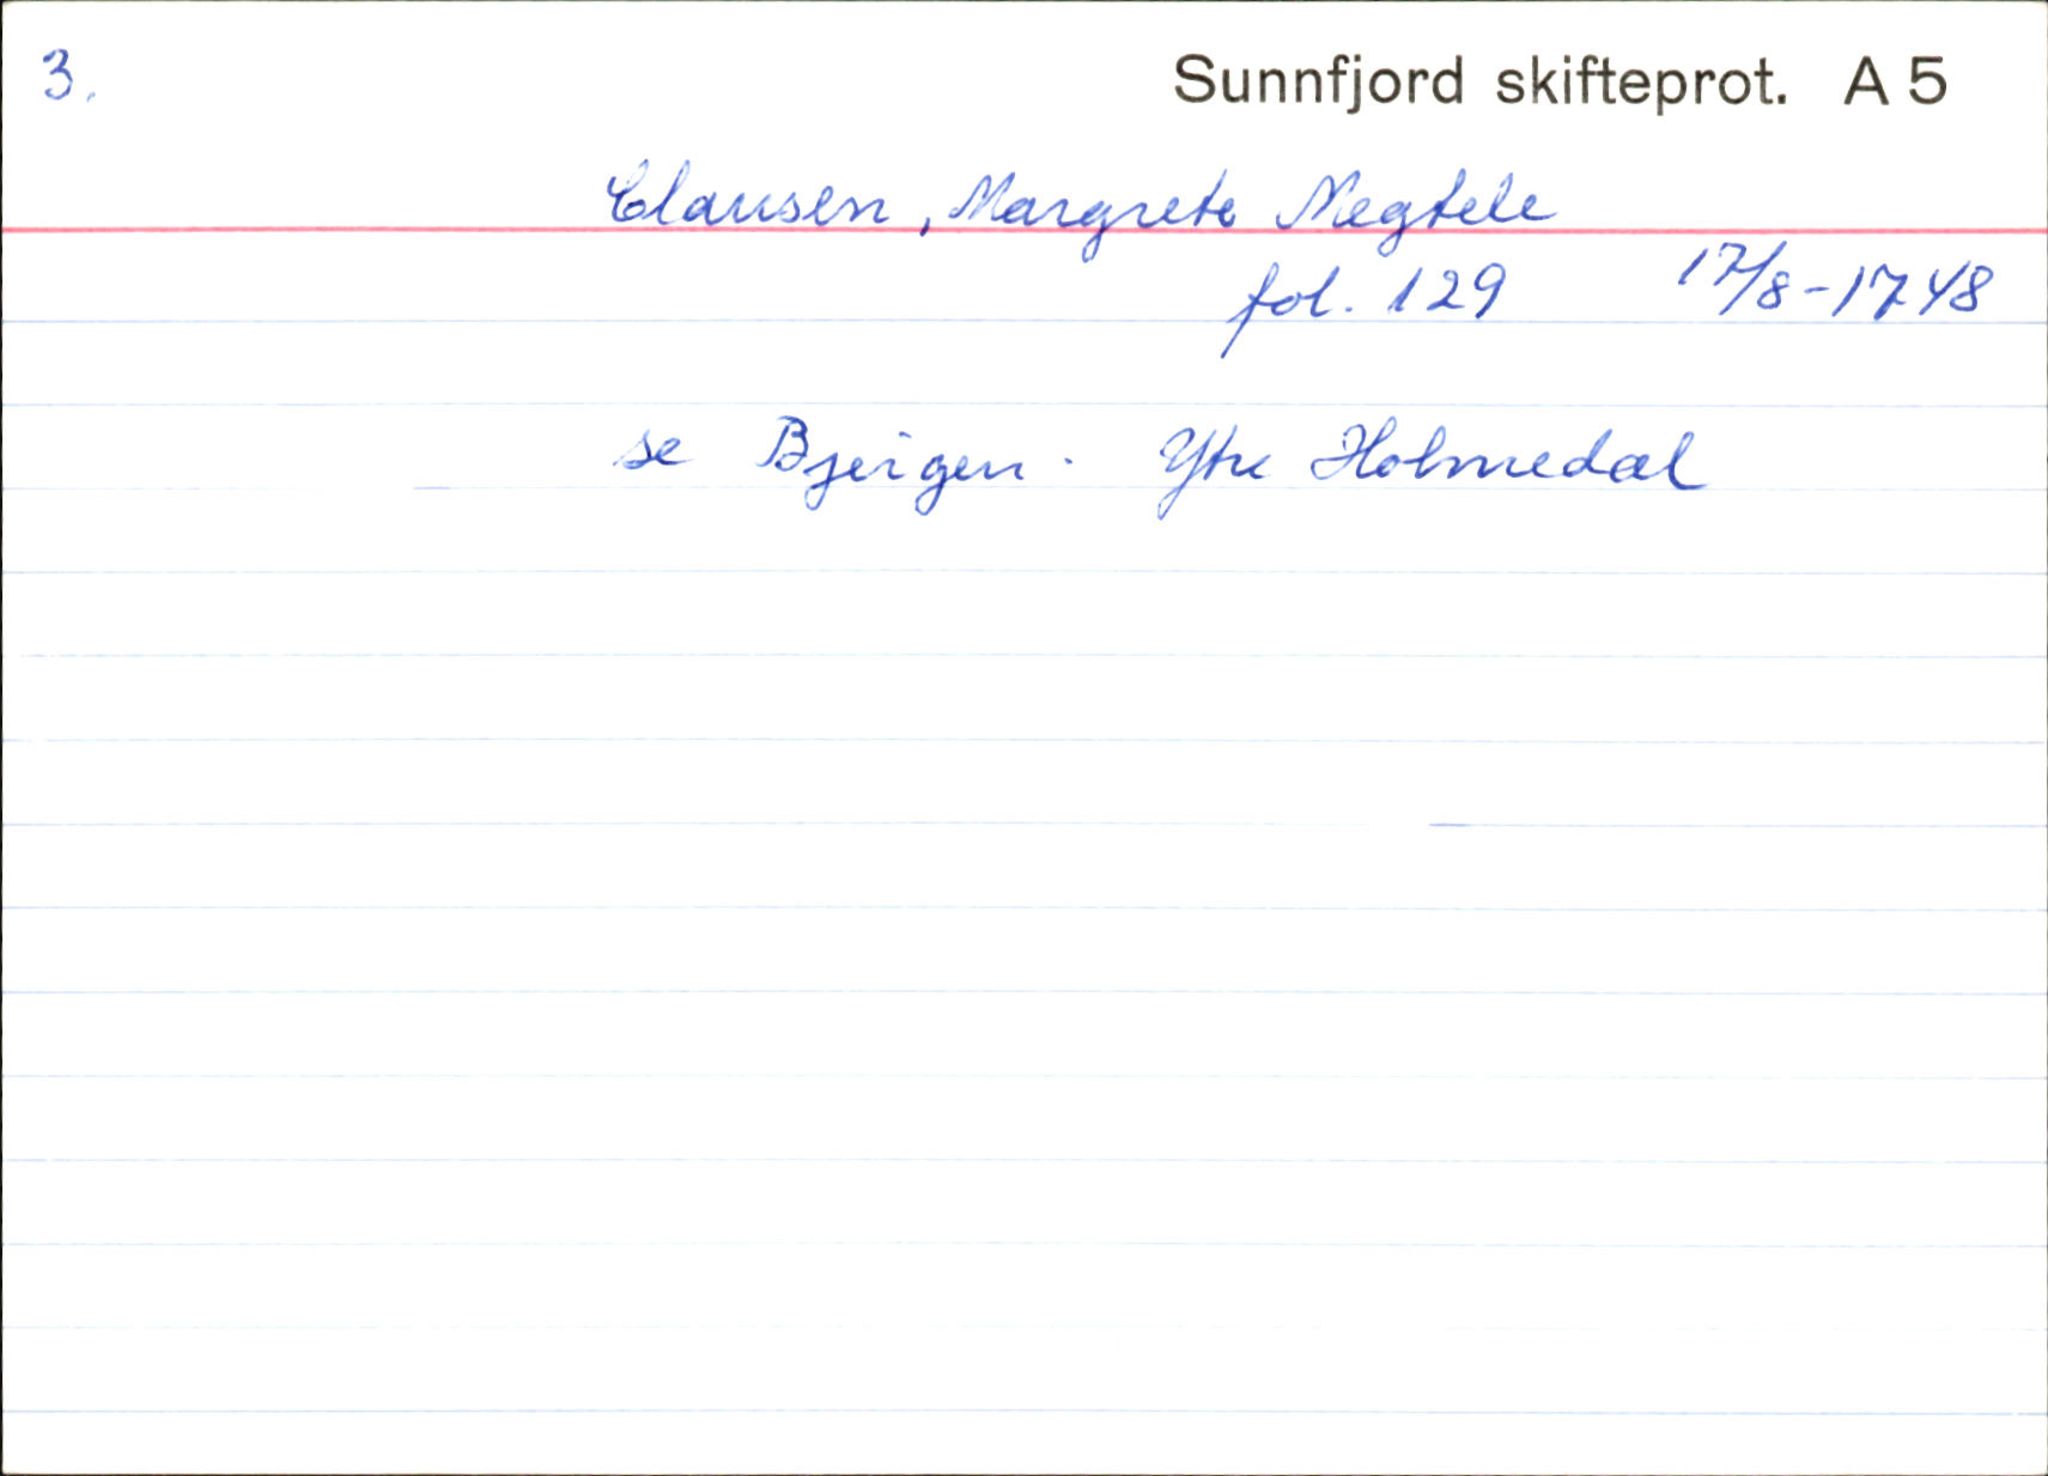 3.
Sunnfjord skifteprot. A 5
Clausen, Margrete Megtele
fol. 129 17/8-1748
se Bjergen. Ytre Holmedal